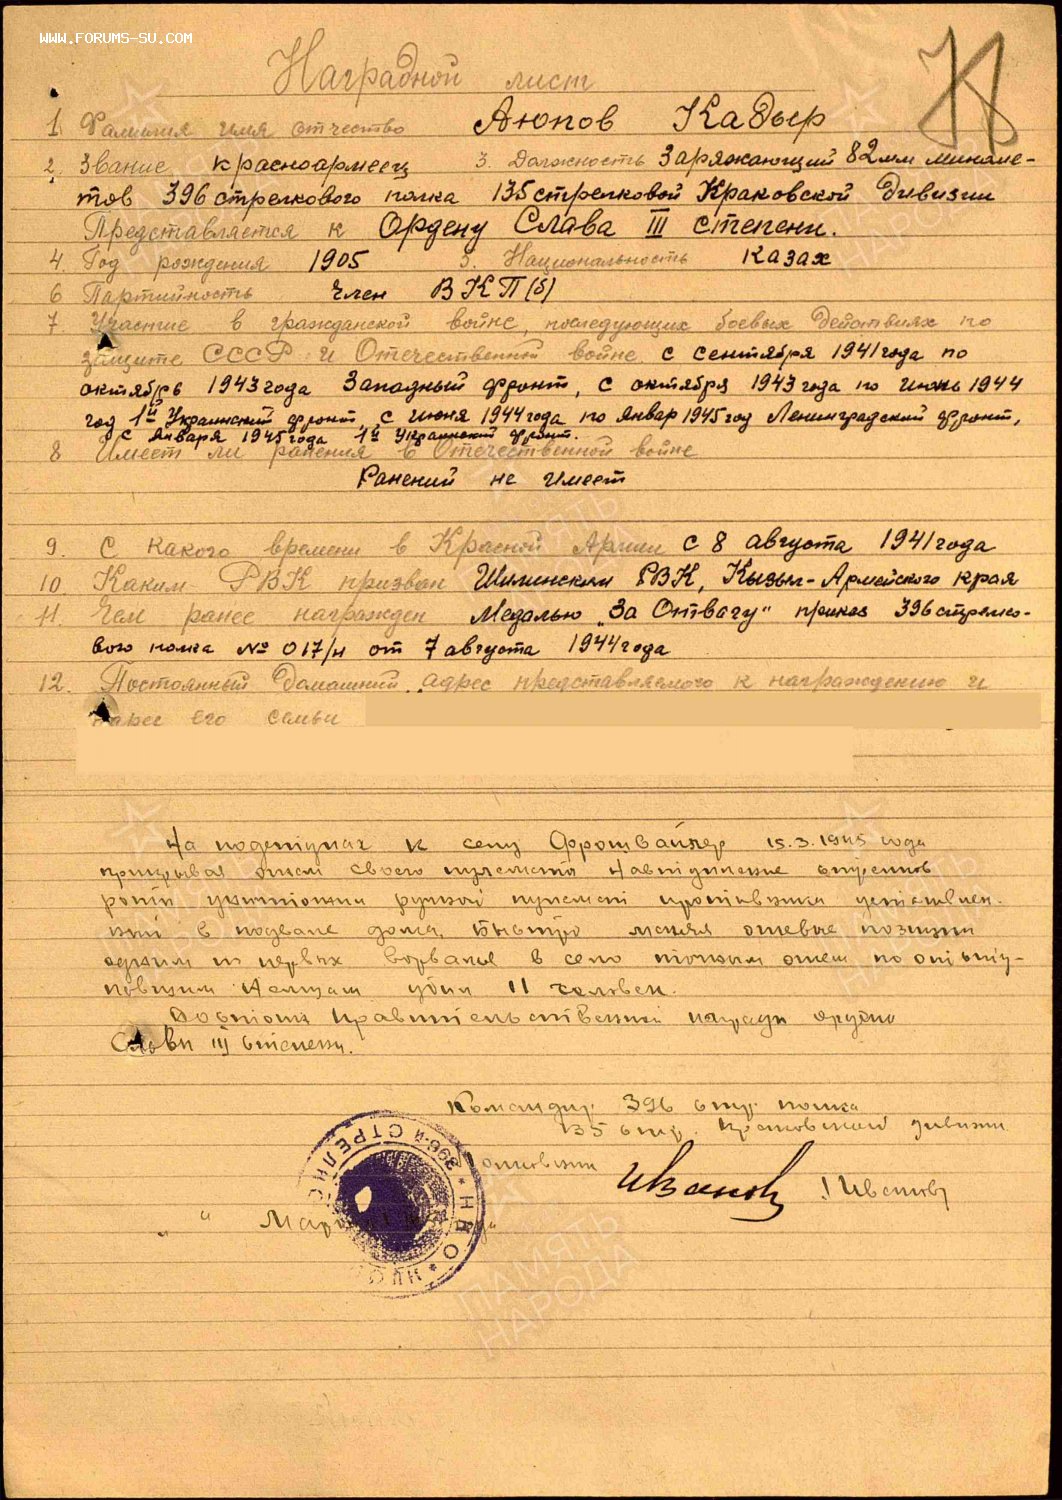 WWW.FORUMS-SU.COM
Наградной лист
1. Фамилия имя отчество Аюпов Кадыр
2. Звание красноармеец 3. Должность Заряжающий 82мм миноме-
тов 396 стрелкового полка 135 стрелковой Краковской Дивизии
Представляется к Ордену Слава III степени.
4. Год рождения 1905 5. Национальность Казах
6 Партийность член ВКП(б)
7 Участие в гражданской войне, последующих боевых действиях по
защите СССР и Отечественной войне с сентября 1941 года по
октябрь 1943 года Западный фронт, с октября 1943 года по июнь 1944
год 1й Украинский фронт, с июня 1944 года по январ 1945 год Ленинградский фронт,
с января 1945 года 1й Украинский фронт.
8 Имеет ли ранения в Отечественной войне
Ранений не имеет
9. С какого времени в Красной Армии с 8 августа 1941 года
10 Каким РВК призван РВК, Кызыл-Армейского края
11. Чем ранее награжден Медалью "За Отвагу" приказ 396 стрелко-
вого полка № 017/н от 7 августа 1944 года
12. Постоянный Домашний адрес представляемого к награждению и
адрес его семьи
На подступах к селу 15.3.1945 года
прикрывая огнем своего пулемета наступление стрелков
роты уничтожил ручной пулемет противника установлен-
ный в подвале дома, быстро меняя огневые позиции
одним из первых ворвался в село точным огнем по отсту-
повшим немцам убил 11 человек.
Достоин правительственной награды ордена
Славы III степени.
Командир 396 стр. полка
135 стр. Краковской дивизии
полковник Иванов /Иванов/
" " Март
396-й СТРЕЛК
НКО
ПАМЯТЬ
НАРОДА